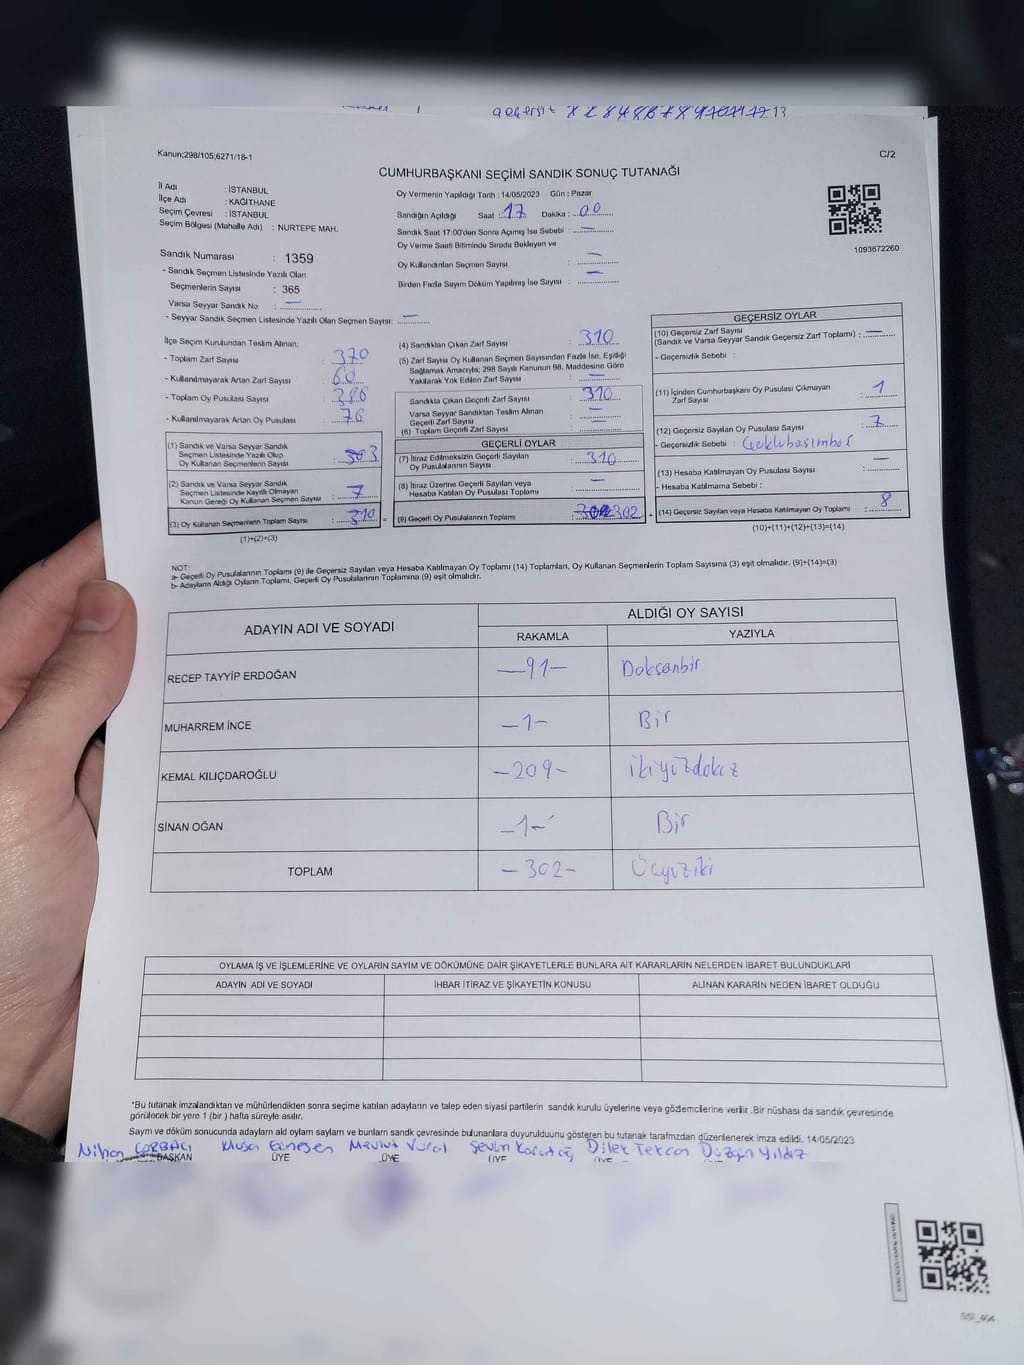 Kanun;298/105;6271/18-1
C/2
CUMHURBAŞKANI SEÇİMİ SANDIK SONUÇ TUTANAĞI
İl Adı : İSTANBUL
İlçe Adı : KAĞITHANE
Seçim Çevresi : İSTANBUL
Seçim Bölgesi (Mahalle Adı) : NURTEPE MAH.
Oy Vermenin Yapıldığı Tarih : 14/05/2023 Gün : Pazar
Sandığın Açıldığı Saat : 17 Dakika : 00
Sandık Saat 17:00'den Sonra Açılmış İse Sebebi : —
Oy Verme Saati Bitiminde Sırada Bekleyen ve
Oy Kullandırılan Seçmen Sayısı : —
Birden Fazla Sayım Döküm Yapılmış İse Sayısı : —
1093672260
Sandık Numarası : 1359
- Sandık Seçmen Listesinde Yazılı Olan
Seçmenlerin Sayısı : 365
Varsa Seyyar Sandık No : —
- Seyyar Sandık Seçmen Listesinde Yazılı Olan Seçmen Sayısı: —
İlçe Seçim Kurulundan Teslim Alınan;
- Toplam Zarf Sayısı : 370
- Kullanılmayarak Artan Zarf Sayısı : 60
- Toplam Oy Pusulası Sayısı : 386
- Kullanılmayarak Artan Oy Pusulası : 76
(1) Sandık ve Varsa Seyyar Sandık
Seçmen Listesinde Yazılı Olup
Oy Kullanan Seçmenlerin Sayısı : 303
(2) Sandık ve Varsa Seyyar Sandık
Seçmen Listesinde Kayıtlı Olmayan
Kanun Gereği Oy Kullanan Seçmen Sayısı : 7
(3) Oy Kullanan Seçmenlerin Toplam Sayısı : 310
(1)+(2)=(3)
(4) Sandıktan Çıkan Zarf Sayısı : 310
(5) Zarf Sayısı Oy Kullanan Seçmen Sayısından Fazla İse, Eşitliği
Sağlamak Amacıyla; 298 Sayılı Kanunun 98. Maddesine Göre
Yakılarak Yok Edilen Zarf Sayısı : —
Sandıkta Çıkan Geçerli Zarf Sayısı : 310
Varsa Seyyar Sandıktan Teslim Alınan
Geçerli Zarf Sayısı : —
(6) Toplam Geçerli Zarf Sayısı :
GEÇERLİ OYLAR
(7) İtiraz Edilmeksizin Geçerli Sayılan
Oy Pusulalarının Sayısı : 310
(8) İtiraz Üzerine Geçerli Sayılan veya
Hesaba Katılan Oy Pusulası Toplamı : —
= (9) Geçerli Oy Pusulalarının Toplamı : 302
GEÇERSİZ OYLAR
(10) Geçersiz Zarf Sayısı
(Sandık ve Varsa Seyyar Sandık Geçersiz Zarf Toplamı) : —
- Geçersizlik Sebebi :
(11) İçinden Cumhurbaşkanı Oy Pusulası Çıkmayan
Zarf Sayısı : 1
(12) Geçersiz Sayılan Oy Pusulası Sayısı : 7
- Geçersizlik Sebebi :
(13) Hesaba Katılmayan Oy Pusulası Sayısı : —
- Hesaba Katılmama Sebebi :
+ (14) Geçersiz Sayılan veya Hesaba Katılmayan Oy Toplamı : 8
(10)+(11)+(12)+(13)=(14)
NOT:
a- Geçerli Oy Pusulalarının Toplamı (9) ile Geçersiz Sayılan veya Hesaba Katılmayan Oy Toplamı (14) Toplamları, Oy Kullanan Seçmenlerin Toplam Sayısına (3) eşit olmalıdır. (9)+(14)=(3)
b- Adayların Aldığı Oyların Toplamı, Geçerli Oy Pusulalarının Toplamına (9) eşit olmalıdır.
ADAYIN ADI VE SOYADI
ALDIĞI OY SAYISI
RAKAMLA YAZIYLA
RECEP TAYYİP ERDOĞAN —91— Doksanbir
MUHARREM İNCE —1— Bir
KEMAL KILIÇDAROĞLU —209— ikiyüzdokuz
SİNAN OĞAN —1— Bir
TOPLAM —302— Üçyüziki
OYLAMA İŞ VE İŞLEMLERİNE VE OYLARIN SAYIM VE DÖKÜMÜNE DAİR ŞİKAYETLERLE BUNLARA AİT KARARLARIN NELERDEN İBARET BULUNDUKLARI
ADAYIN ADI VE SOYADI İHBAR İTİRAZ VE ŞİKAYETİN KONUSU ALINAN KARARIN NEDEN İBARET OLDUĞU
*Bu tutanak imzalandıktan ve mühürlendikten sonra seçime katılan adayların ve talep eden siyasi partilerin sandık kurulu üyelerine veya gözlemcilerine verilir .Bir nüshası da sandık çevresinde
görülecek bir yere 1 (bir ) hafta süreyle asılır.
Sayım ve döküm sonucunda adayların aldı oyların sayların ve bunların sandk çevresinde bulunanlara duyurulduunu gösteren bu tutanak tarafmzdan düzenlenerek imza edildi. 14/05/2023
Nihan ÇORBACI Musa Mevlut Vural Sevim Karataş Dilek Tekcan Düzgün Yıldız
BAŞKAN ÜYE ÜYE ÜYE ÜYE